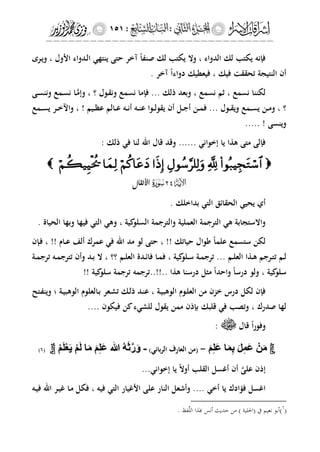 إشراقات الإسراء الجزء الثاني : الباب الثاني : ١٥١
فإنه يكتب لك الدواء ، ولا يكتب لك صنفاً آخر حتى ينتهي الدواء الأول ، ويرى
أن النتيجة تحققت فيك ، فيعطيك دواءاً آخر .
لكننا نسمع ، ثم نسمع ، وبعد ذلك ... فإما نسمع ونقول ؟ ، وإما نسمع وننسى
؟ ، ومن يسمع ويقول ... فمن أجل أن يقولوا عنه أنه عالم عظيم ! ، والآخر يسمع
وينسى ! .....
فإلى متى هذا يا إخواني ...... وقد قال الله لنا في ذلك :
﴿ ٱسْتَجِيبُوا۟ لِلَّهِ وَلِلرَّسُولِ إِذَا دَعَاكُمْ لِمَا يُحْيِيكُمْ ﴾
الآية ٢٤ الأنفال
أي يحيي الحقائق التي بداخلك .
والاستجابة هي الترجمة العملية والترجمة السلوكية ، وهي التي فيها وبها الحياة .
لكن ستسمع علماً طوال حياتك !! ، حتى لو مد الله في عمرك ألف عام !! ، فإن
لم تترجم هذا العلم ... ترجمة سلوكية ، فما فائدة العلم ؟؟ ، لا بد وأن تترجمه ترجمة
سلوكية ، ولو درساً واحداً مثل درسنا هذا ..!!..ترجمه ترجمة سلوكية !!
فإن لكل درس خزن من العلوم الوهبية ، عند ذلك تشعر بالعلوم الوهبية ؛ وينفتح
لها صدرك ، وتصب في قلبك بإذن ممن يقول للشيء كن فيكون ....
وفوراً قال :
مَنْ عَمِلَ بِمَا عَلِمَ - (من العارف الرباني) - وَرَّثَهُ الله عِلْمَ مَا لَمْ يَعْلَمْ (٦)
إذن عليَّ أن أغسل القلب أولاً يا إخواني...
اغسل فؤادك يا أخي .... وأشعل النار على الأغيار التي فيه ، فكل ما غير الله فيه
(٦) أبو نعيم في (الحلية ) من حديث أنس بهذا اللَّفظ .